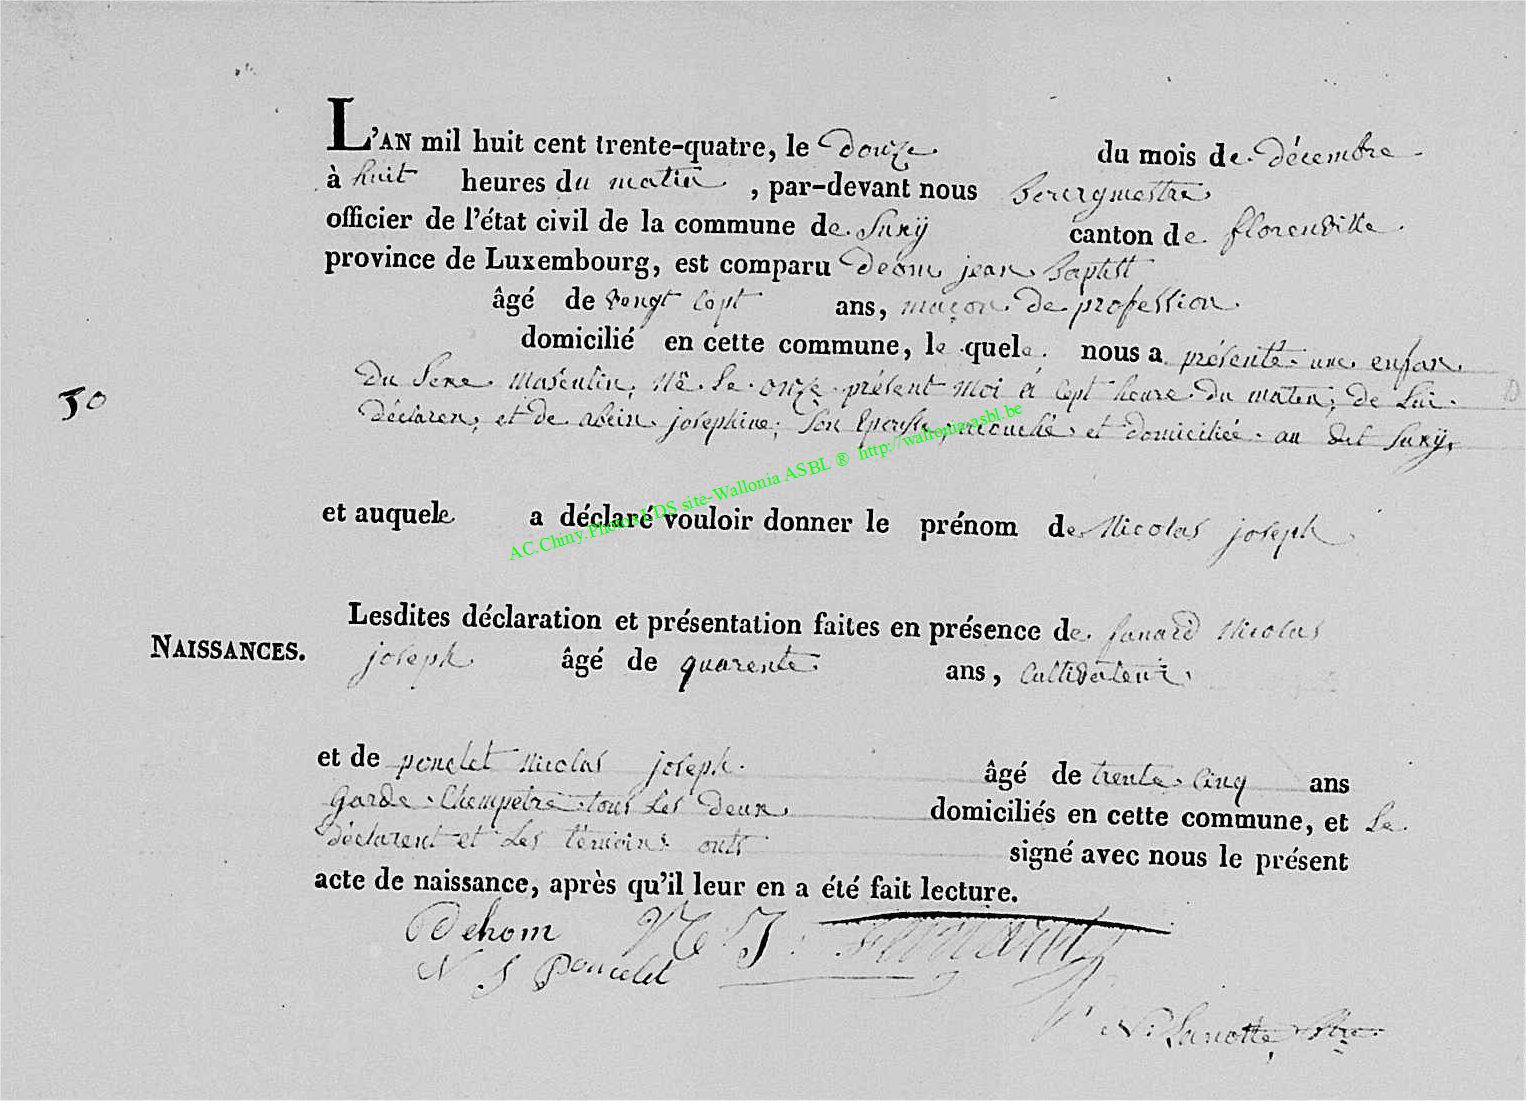 L'AN mil huit cent trente-quatre, le Douze du mois de décembre
à huit heures du matin, par-devant nous Bourgmestre
officier de l'état civil de la commune de Suxÿ canton de florenville
province de Luxembourg, est comparu Deom jean Baptist
âgé de vengt cept ans, maçon de profession
domicilié en cette commune, le quele nous a présenté une enfan
50 Du Sexe Masculin, né Le onze présent moi à cept heure du maten, de Lui
déclaren, et de josephine, Son Epouse, accouché et domiciliée au dit Suxÿ,
AC.Chiny.Photos LDS site-Wallonia ASBL ® http://wallonia-asbl.be
et auquele a déclaré vouloir donner le prénom de Nicolas joseph
Lesdites déclaration et présentation faites en présence de Nicolas
NAISSANCES. joseph âgé de quarente ans, Cultivateur
et de poncelet Nicolas joseph âgé de trente cinq ans
Garde Champetre tous Les Deux domiciliés en cette commune, et Le
Déclarent et Les témoins onts signé avec nous le présent
acte de naissance, après qu'il leur en a été fait lecture.
Dehom N J
N J Poncelet